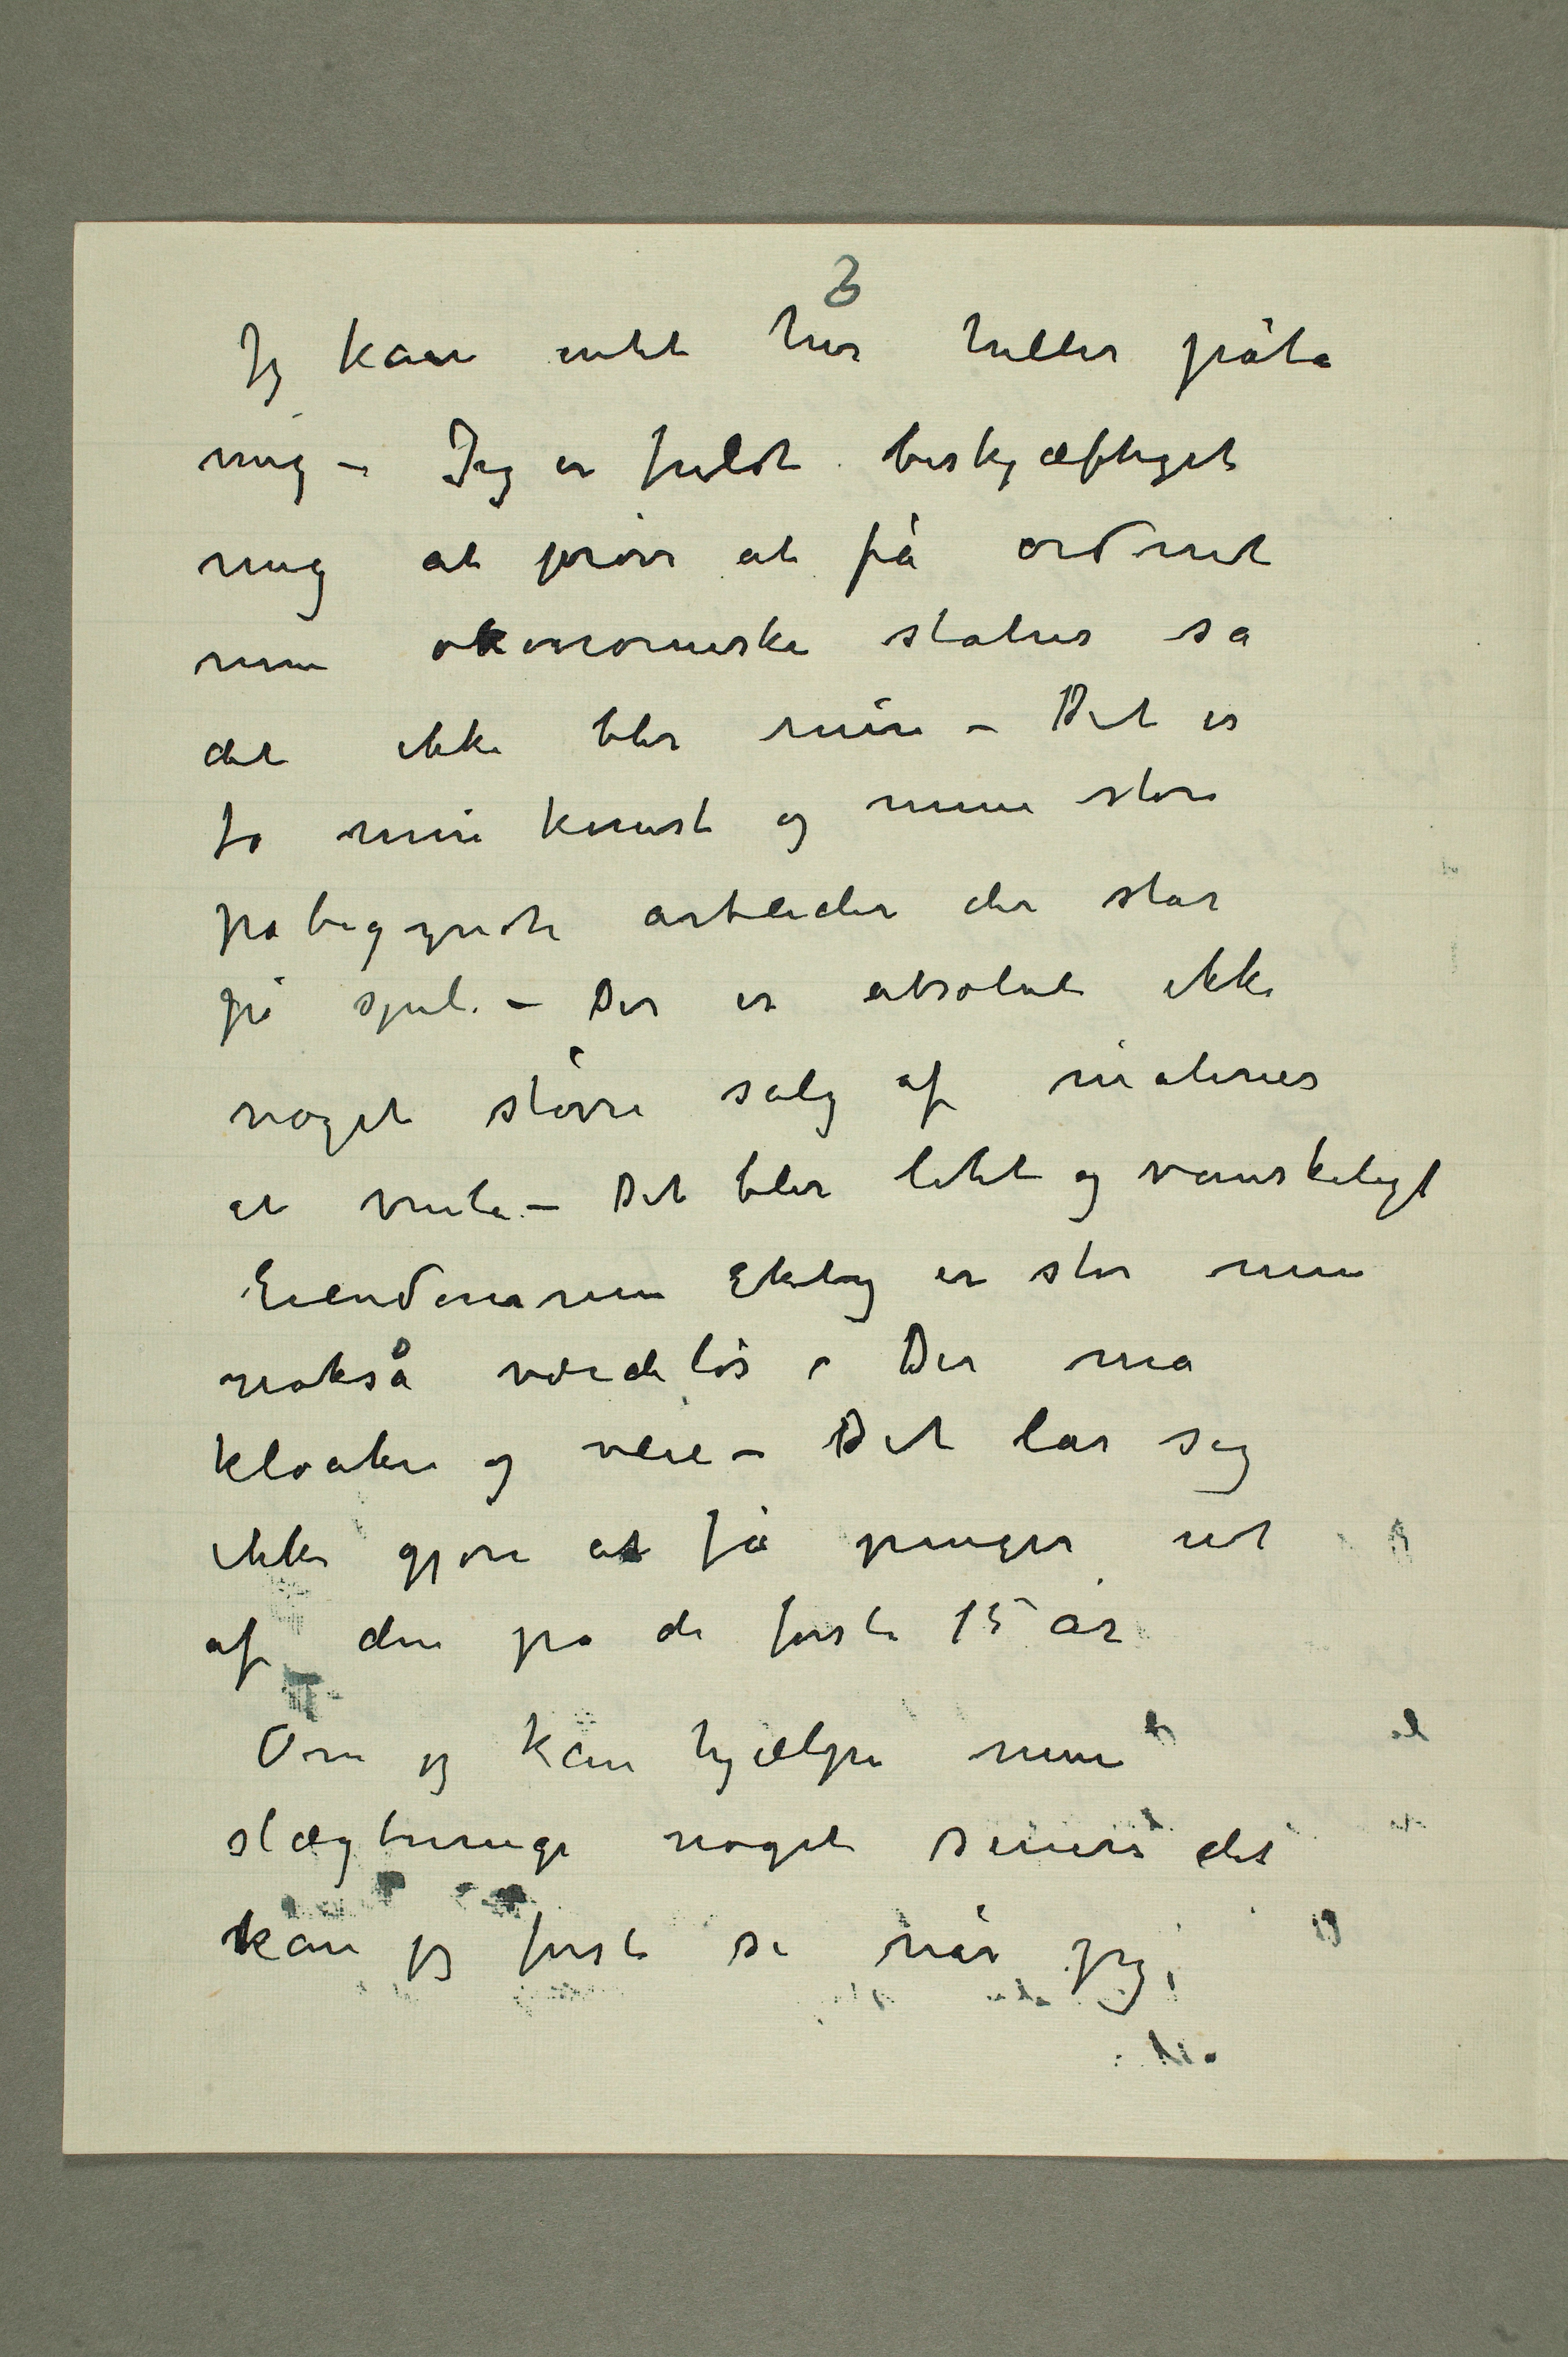 3
Jeg kan intet her heller påta
mig – Jeg er fuldt beskjæftiget
mig at prøve at få ordnet
min økonomiske status så
det ikke blir mine – Det er
jo min kunst og mine store
påbegynte arbeider der står
på spil. – Der er absolut ikke
noget større salg af malerier
at vente – Det blir litet og vanskeligt
Eiendommen Ekely er stor men
nokså værdiløs – Der må
kloaker og veie – Det lar sig
ikke gjøre at få penger ut
af den på de første 15 år
Om jeg kan hjælpe mine
slægtninge noget senere det
kan jeg først se når jeg